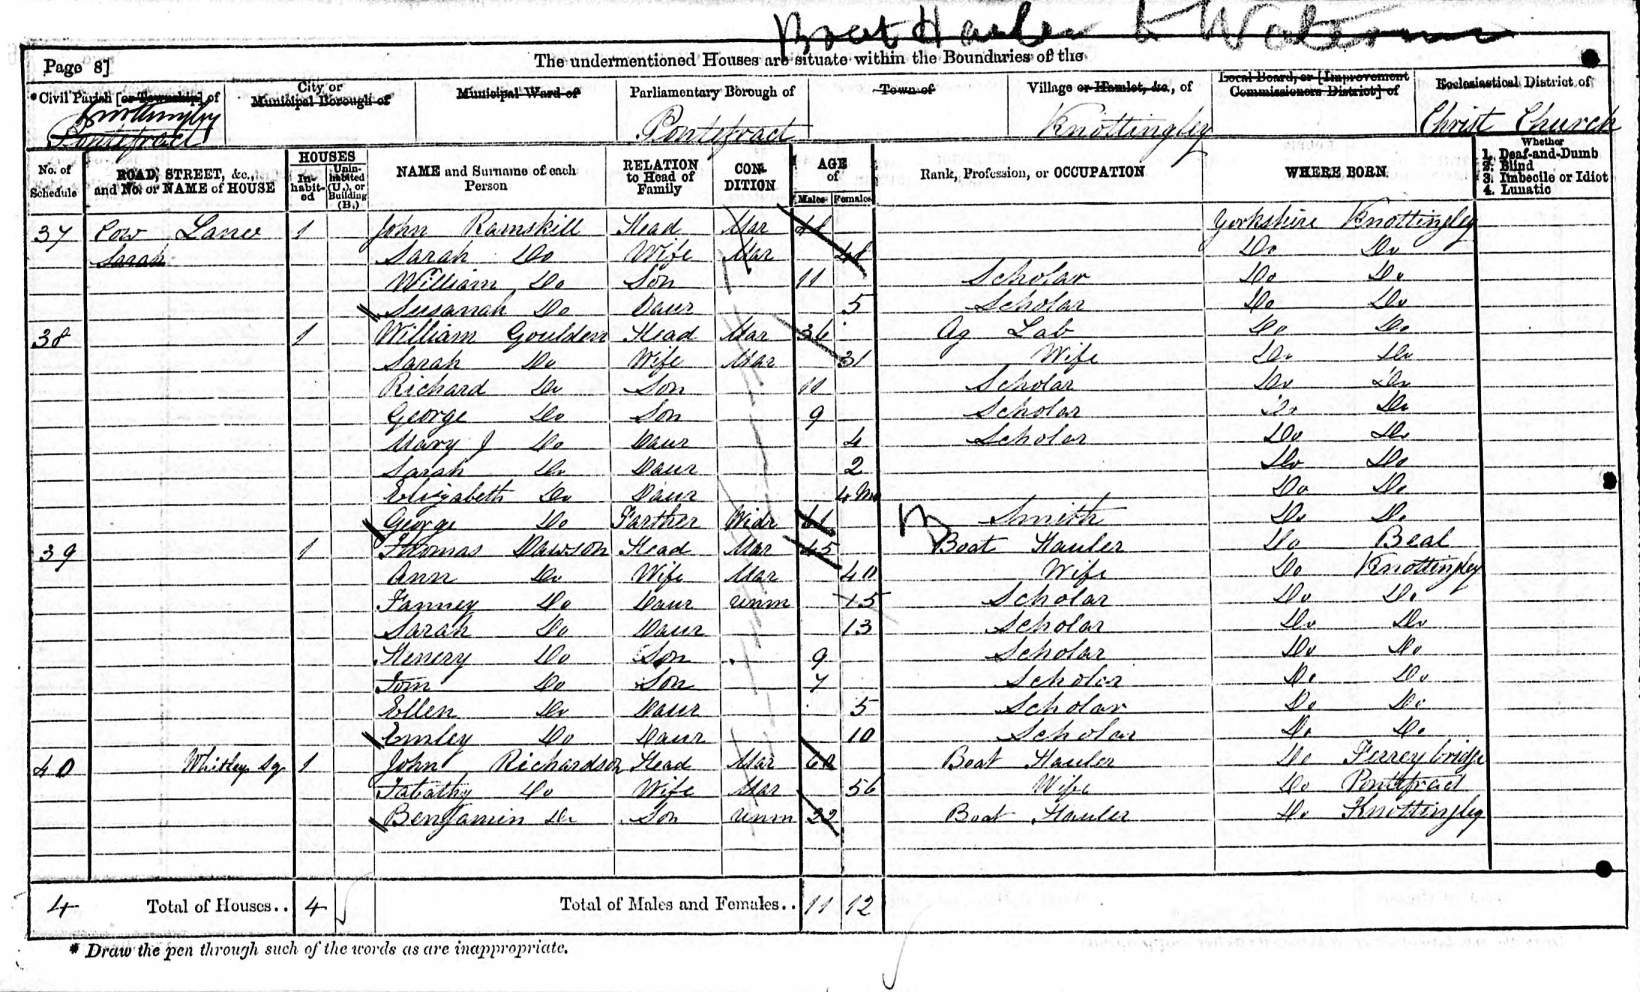 Boat Hauler
Page 8]
The undermentioned Houses are situate within the Boundaries of the
*Civil Parish [or Township] of
City or Municipal Borough of
Municipal Ward of
Parliamentary Borough of
Town of
Village or Hamlet, &c., of
Local Board, or [Improvement Commissioners District] of
Ecclesiastical District of
Knottingley
Pontefract
Pontefract
Knottingley
Christ Church
No. of Schedule
ROAD, STREET, &c., and No. or NAME of HOUSE
HOUSES
Inhabited
Uninhabited (U.), or Building (B.)
NAME and Surname of each Person
RELATION to Head of Family
CONDITION
AGE of
Males
Females
Rank, Profession, or OCCUPATION
WHERE BORN
Whether
1. Deaf-and-Dumb
2. Blind
3. Imbecile or Idiot
4. Lunatic
37 Cow Lane 1 John Ramskill Head Mar Yorkshire Knottingley
Sarah Sarah Do Wife Mar Do Do
William Do Son 11 Scholar Do Do
Susanah Do Daur 5 Scholar Do Do
38 1 William Goulden Head Mar 36 Ag Lab Do Do
Sarah Do Wife Mar 31 Wife Do Do
Richard Do Son 11 Scholar Do Do
George Do Son 9 Scholar Do Do
Mary J Do Daur 4 Scholar Do Do
Sarah Do Daur 2 Do Do
Elizabeth Do Daur 4 Mo Do Do
George Do Farther Widr Smith Do Do
39 1 Thomas Dawson Head Mar 45 Boat Hauler Do Beal
Ann Do Wife Mar 40 Wife Do Knottingley
Fanney Do Daur unm 15 Scholar Do Do
Sarah Do Daur 13 Scholar Do Do
Henery Do Son 9 Scholar Do Do
Tom Do Son 7 Scholar Do Do
Ellen Do Daur 5 Scholar Do Do
Emley Do Daur 10 Scholar Do Do
40 Sq. 1 John Richardson Head Mar Boat Hauler Do Ferrey bridge
Tabathy Do Wife Mar 56 Wife Do Pontefract
Benjamin Do Son unm 22 Boat Hauler Do Knottingley
4 Total of Houses.. 4 Total of Males and Females.. 11 12
* Draw the pen through such of the words as are inappropriate.